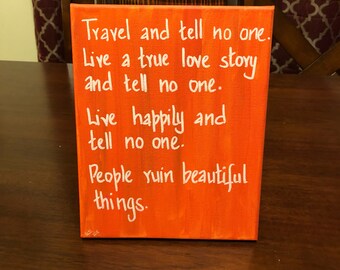 Travel and tell no one.
Live a true love story
and tell no one.
Live happily and
tell no one.
People ruin beautiful
things.